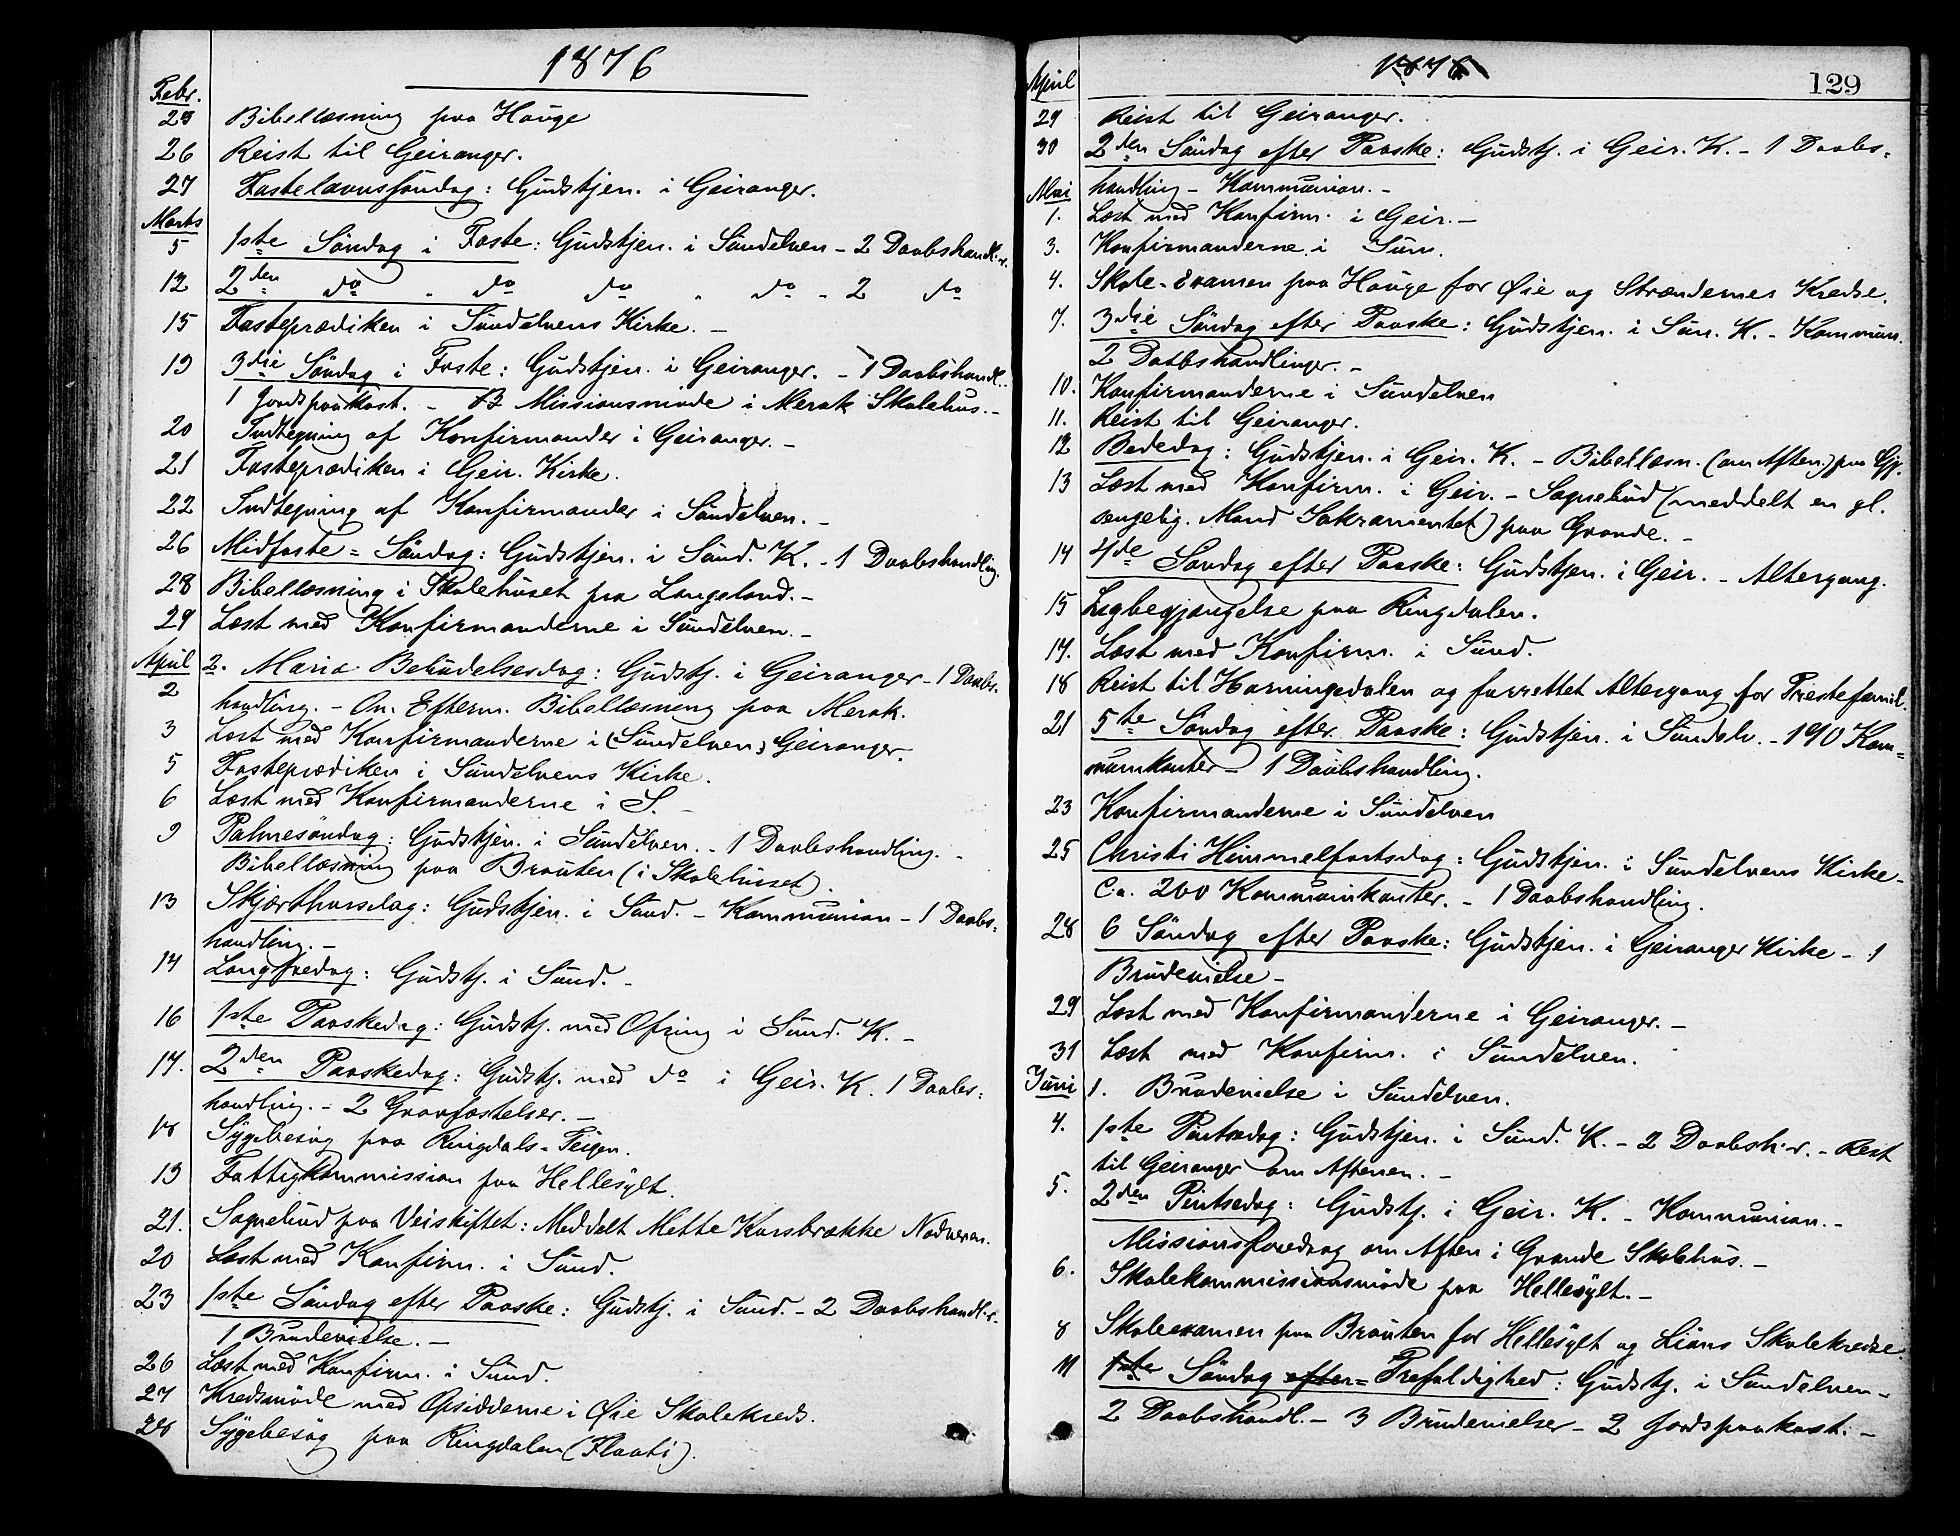 1876
Febr.
25 Bibellæsning paa Hauge
26 Reist til Geiranger.
27 Fastelavnssöndag: Gudstjen. i Geiranger.
Marts
5 1ste Söndag i Faste: Gudstjen. i Sundelven - 2 Daabshandl.r.
12 2den do " do do " do - 2 do
15 Fasteprædiken i Sundelvens Kirke. -
19 3die Söndag i Faste: Gudstjen. i Geiranger. - 1 Daabshandl..
1 Jordspaakast. - Missionsmöde i Merok Skolehus. -
20 Indtegning af Konfirmander i Geiranger. -
21 Fasteprædiken i Geir. Kirke.
22 Indtegning af Konfirmander i Sundelven. -
26 Midfaste=Söndag: Gudstjen. i Sund. K. - 1 Daabshandling.
28 Bibellæsning i Skolehuset paa Langeland. -
29 Læst med Konfirmanderne i Sundelven. -
April 2. Maria Bebudelsesdag: Gudstj. i Geiranger - 1 Daabs-
2 handling. - Om Efterm. Bibellæsning paa Merok.
3 Læst med Konfirmanderne i (Sundelven) Geiranger.
5 Fasteprædiken i Sundelvens Kirke.
6 Læst med Konfirmanderne i S. -
9 Palmesöndag: Gudstjen. i Sundelven. - 1 Daabshandling. -
Bibellæsning paa Brauten (i Skolehuset).
13 Skjærthorsdag: Gudstjen. i Sund. - Kommunion - 1 Daabs=
handling. -
14 Langfredag: Gudstj. i Sund. -
16 1ste Paaskedag: Gudstj. med Ofring i Sund. K. -
17. 2den Paaskedag: Gudstj. med do i Geir. K. 1 Daabs=
handling. - 2 Gravfæstelser. -
18 Sygebesög paa Ringdals=Teigen.
19 Fattigkommission paa Hellesylt.
21. Sognebud paa Veiskiftet: Meddelt Mette Korsbrække Nadveren.
20 Læst med Konfirm. i Sund.
23 1ste Söndag efter Paaske: Gudstj. i Sund. - 2 Daabshandl.r.
1 Brudevielse. -
26 Læst med Konfirm. i Sund.
27 Kredsmöde med Opsidderne i Øie Skolekreds.
28 Sygebesög paa Ringdalen (Flaati).
1876
129
April
29 Reist til Geiranger.
30 2den Söndag efter Paaske: Gudstj. i Geir. K. - 1 Daabs=
handling - Kommunion. -
Mai
1. Læst med Konfirm. i Geir. -
3. Konfirmanderne i Sun.
4. Skole-Examen paa Hauge for Øie og Strandernes Kredse.
7. 3die Söndag efter Paaske: Gudstjen. i Sun. K. - Kommun.
2 Daabshandlinger. -
10. Konfirmanderne i Sundelven
11. Reist til Geiranger.
12 Bededag: Gudstjen. i Geir. K. - Bibellæsn. (om Aften.) paa Gj.
13 Læst med Konfirm. i Geir. - Sognebud (meddelt en gl.
sengelig. Mand Sakramentet) paa Grande. -
14 4de Söndag efter Paaske: Gudstjen. i Geir. - Altergang.
15 Ligbegjængelse paa Ringdalen.
17. Læst med Konfirm. i Sund.
18 Reist til Horningdalen og forrettet Altergang for Prestefamil.
21 5te Söndag efter Paaske: Gudstjen. i Sundelv. - 190 Kom=
munikanter - 1 Daabshandling.
23 Konfirmanderne i Sundelven
25 Christi Himmelfartsdag: Gudstjen. i Sundelvens Kirke -
C.a. 200 Kommunikanter. - 1 Daabshandling.
28 6 Söndag efter Paaske: Gudstjen. i Geiranger Kirke - 1
Brudevielse -
29 Læst med Konfirmanderne i Geiranger. -
31 Læst med Konfirm. i Sundelven.
Juni 1. Brudevielse i Sundelven.
4. 1ste Pintsedag: Gudstjen. i Sund. K. - 2 Daabsh.r. - Reist
til Geiranger om Aftenen. -
5. 2den Pintsedag: Gudstj. i Geir. K. - Kommunion. -
Missionsforedrag om Aften i Grande Skolehus. -
6. Skolekommissionsmöde paa Hellesylt. -
8 Skoleexamen paa Brauten for Hellesylt og Lians Skolekredse.
11 1ste Söndag efter= Trefoldighed: Gudstj. i Sundelven -
2 Daabshandl. - 3 Brudevielser - 2 Jordspaakast. -